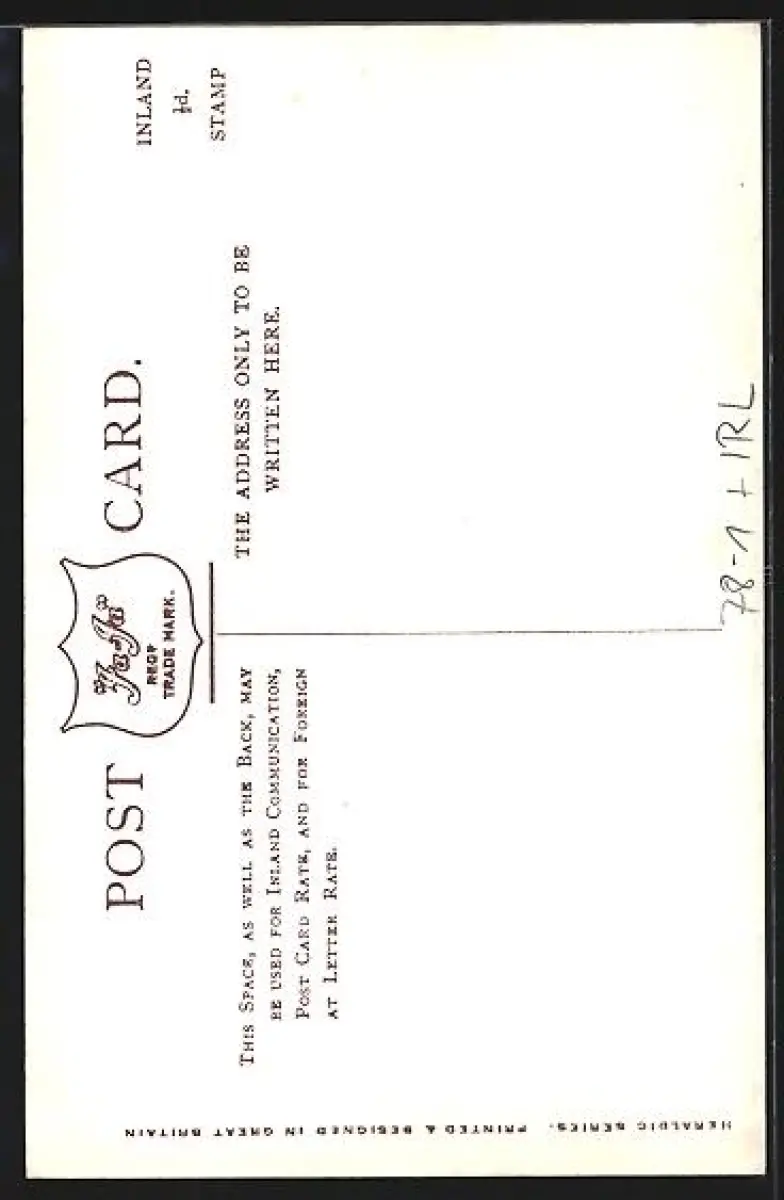 POST CARD.
"Ja-Ja"
REGD
TRADE MARK.
INLAND
½d.
STAMP
THIS SPACE, AS WELL AS THE BACK, MAY
BE USED FOR INLAND COMMUNICATION,
POST CARD RATE, AND FOR FOREIGN
AT LETTER RATE.
THE ADDRESS ONLY TO BE
WRITTEN HERE.
HERALDIC SERIES. PRINTED & DESIGNED IN GREAT BRITAIN
78-1 + IRL